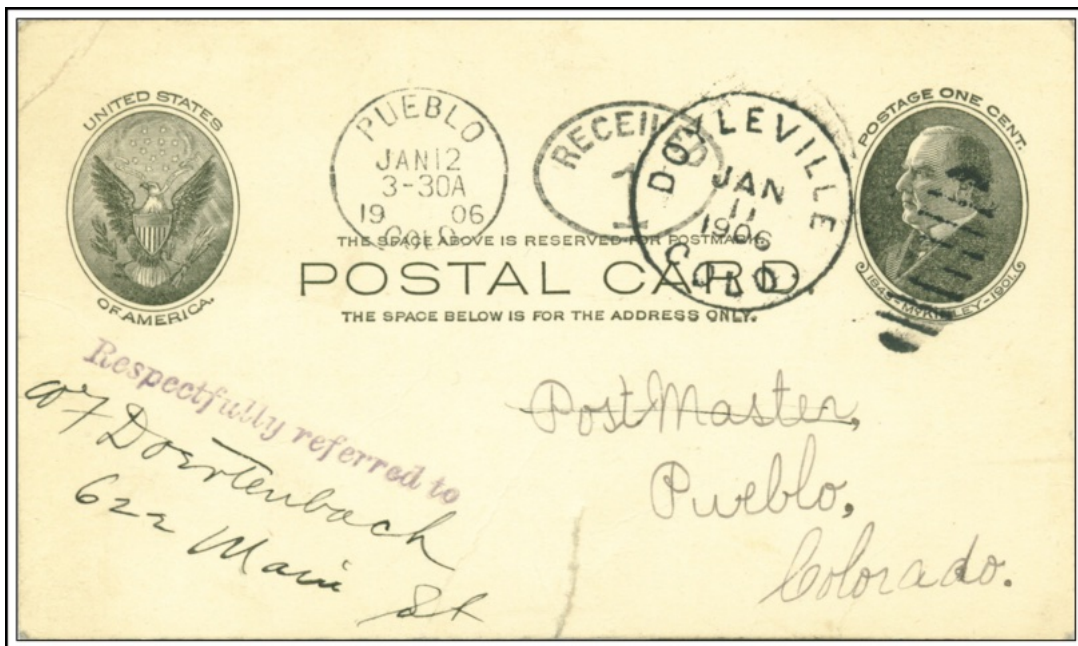 UNITED STATES
OF AMERICA.
PUEBLO
JAN 12
3-30A
19 06
COLO.
RECEIVED
1
DOYLEVILLE
JAN
11
1906
COLO.
POSTAGE ONE CENT.
1843-McKINLEY-1901.
THE SPACE ABOVE IS RESERVED FOR POSTMARK.
POSTAL CARD.
THE SPACE BELOW IS FOR THE ADDRESS ONLY.
Respectfully referred to
W F Doertenbach
622 Main
St
PostMaster,
Pueblo,
Colorado.